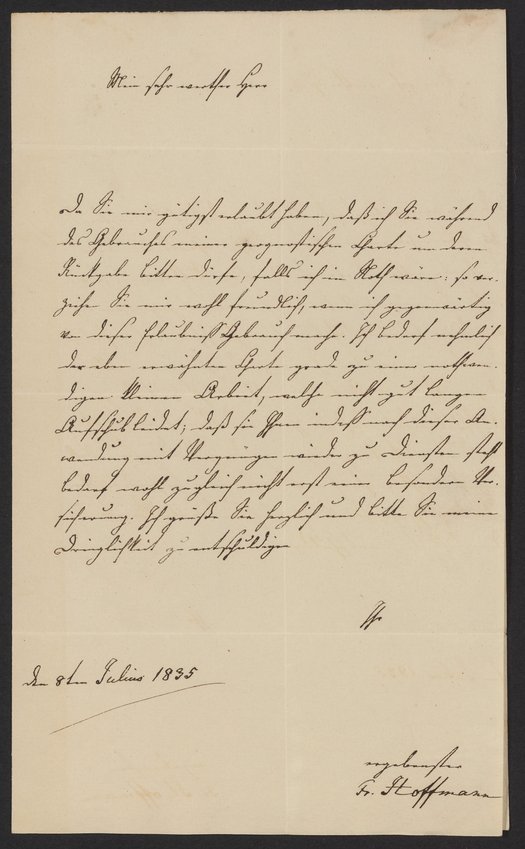 Mein sehr werther Herr
Da Sie mir gütigst erlaubt haben, daß ich Sie während
des Gebrauches meiner geognostischen Charte um deren
Rückgabe bitten dürfe, falls ich in Noth wäre: so ver-
zeihn Sie mir wohl freundlich, wenn ich gegenwärtig
von dieser Erlaubniß Gebrauch mache. Ich bedarf nehmlich
der eben erwähnten Charte grade zu einer nothwen-
digen kleinen Arbeit, welche nicht gut langen
Aufschub leidet; daß sie Ihnen indeß nach dieser An-
wendung mit Vergnügen wieder zu Diensten steht
bedarf wohl zugleich nicht erst einer besondern Ver-
sicherung. Ich grüße Sie herzlich und bitte Sie meine
Dringlichkeit zu entschuldigen
Ihr
den 8ten Julius 1835
ergebenster
Fr. Hoffmann